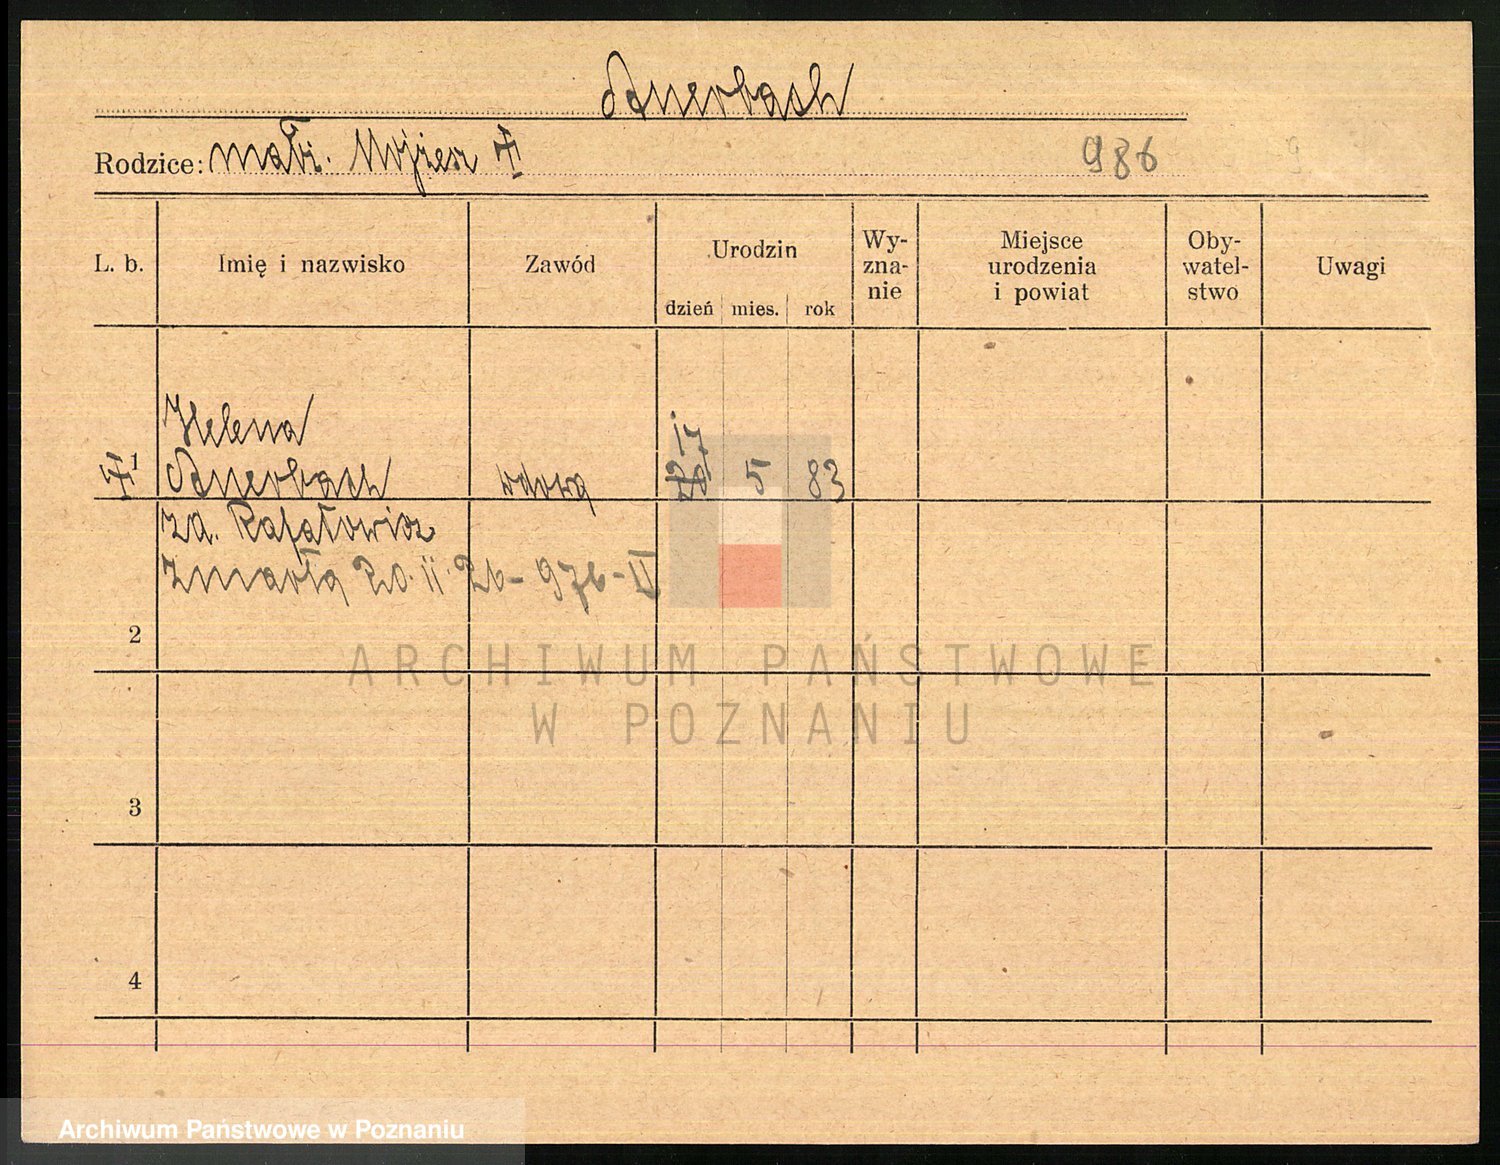 Auerbach
Rodzice: małż. Mojżesz 986
L. b. Imię i nazwisko Zawód Urodzin dzień mies. rok Wy-zna-nie Miejsce urodzenia i powiat Oby-watel-stwo Uwagi
Helena
1 Auerbach wdowa 17 5 83
zd. Rafałowicz
zmarła 20. II. 26 - 976 - II
2
3
4
ARCHIWUM PAŃSTWOWE
W POZNANIU
Archiwum Państwowe w Poznaniu